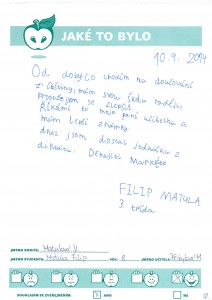 JAKÉ TO BYLO
10.9. 2014
Od doby, co chodím na doučování
z češtiny, mám svou školu raději
protože jsem se zlepšil.
Říkámi to moje paní učitelka a
mám lepší známky.
dnes jsem dostal jedničku z
diktátu. Děkuji
FILIP MATULA
3. třída
JMÉNO RODIČE: Matulová V.
JMÉNO STUDENTA: Matula Filip VĚK: 8 JMÉNO UČITELE:
SOUHLASÍM SE ZVEŘEJNĚNÍM: ANO NE